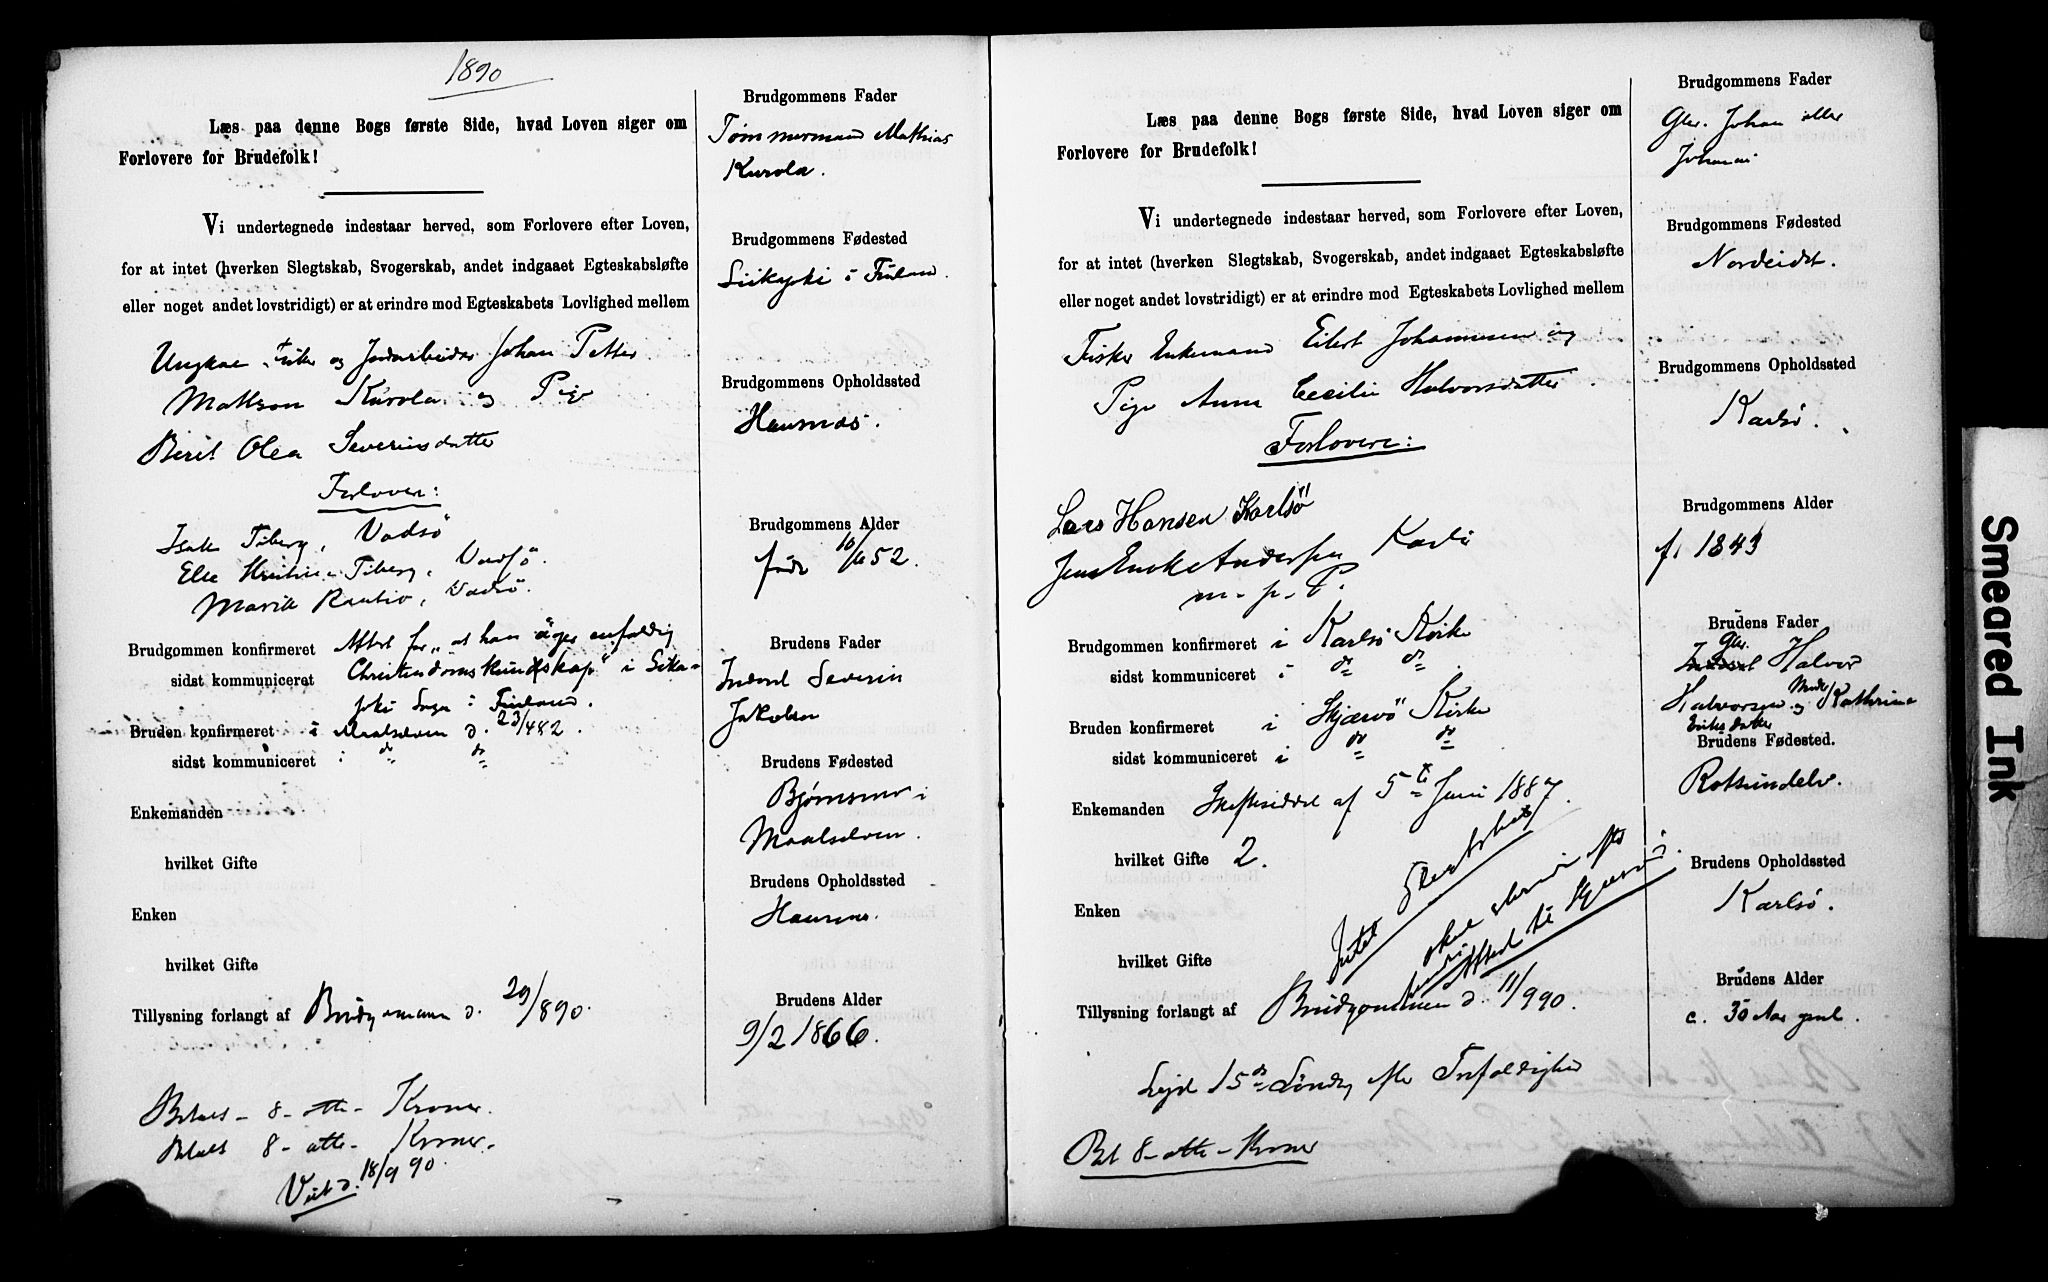 1890
Læs paa denne Bogs første Side, hvad Loven siger om
Forlovere for Brudefolk!
Vi undertegnede indestaar herved, som Forlovere efter Loven,
for at intet (hverken Slegtskab, Svogerskab, andet indgaaet Egteskabsløfte
eller noget andet lovstridigt) er at erindre mod Egteskabets Lovlighed mellem
Ungkar og Jordarbeider Johan Petter
Mattson Kurola og Pige
Berit Olea Severinsdatter
Forlovere:
Isak Tiberg, Vadsö
Else Tiberg, Vadsö.
Marie Rautio, Vadsö.
Brudgommen konfirmeret Attest for "at han äger enfaldig
sidst kommuniceret Christendomskundskap" i Sika-
joki Sogn i Finland.
Bruden konfirmeret i Maalselven d. 23/4 82.
sidst kommuniceret i do do
Enkemanden
hvilket Gifte
Enken
hvilket Gifte
Tillysning forlangt af Brudgommen d. 29/8 90.
Betalt - 8 - otte - Kroner.
Betalt 8 - otte - Kroner.
Viet d. 18/9 90.
Brudgommens Fader
Tømmermand Mathias
Kurola.
Brudgommens Fødested
i Finland.
Brudgommens Opholdssted
Havnnæs.
Brudgommens Alder
født 10/6 52.
Brudens Fader
Inderst Severin
Jakobsen
Brudens Fødested
Bjørnsmo i
Maalselven.
Brudens Opholdssted
Havnnæs.
Brudens Alder
9/2 1866.
Læs paa denne Bogs første Side, hvad Loven siger om
Forlovere for Brudefolk!
Vi undertegnede indestaar herved, som Forlovere efter Loven,
for at intet (hverken Slegtskab, Svogerskab, andet indgaaet Egteskabsløfte
eller noget andet lovstridigt) er at erindre mod Egteskabets Lovlighed mellem
Fisker Enkemand Eilert Johannesen og
Pige Anne Cecilie Halvorsdatter.
Forlovere:
Lars Hansen Karlsö
Jens Andersen Karlsö
m. p. P.
Brudgommen konfirmeret i Karlsö Kirke
sidst kommuniceret i do do
Bruden konfirmeret i Skjærvö Kirke
sidst kommuniceret i do do
Enkemanden Skifteseddel af 5te Juni 1887.
hvilket Gifte 2.
Enken
hvilket Gifte
Intet
skal
Attest til
Tillysning forlangt af Brudgommen d. 11/9 90.
Lyst 15de Søndag efter Trefoldighed
Bet 8 - otte - Kroner
Brudgommens Fader
Gbr. Johan eller
Brudgommens Fødested
Nordeidet.
Brudgommens Opholdssted
Karlsö.
Brudgommens Alder
f. 1843
Brudens Fader
Gbr.
Inderst Halvor
Halvorsen og Moder Kathrina
Eriksdatter
Brudens Fødested.
Rotsundelv.
Brudens Opholdssted
Karlsö.
Brudens Alder
c. 30 Aar gml.
Smeared Ink